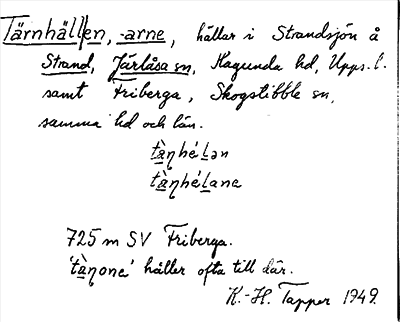 Tärnhäll|en, -arne, hällar i Strandsjön å
Strand, Järlåsa sn, Hagunda hd, Upps. l.
samt Friberga, Skogstibble sn,
samma hd och län.
tàŋhéLən
tàŋhéLane
725 m SV Friberga.
'tàŋone' håller ofta till där.
K.-H. Tapper 1949.